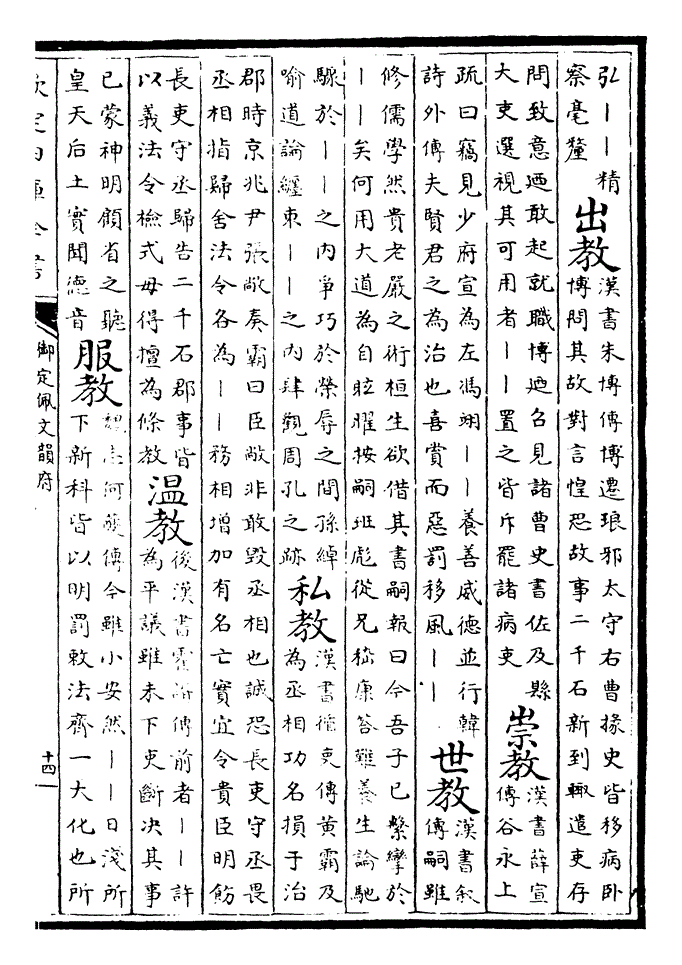 弘丨丨精
察毫釐
出教
漢書朱博傳博遷琅邪太守右曹掾史皆移病卧
博問其故對言惶恐故事二千石新到輙遣吏存
問致意廼敢起就職博廼召見諸曹史書佐及縣
大吏選視其可用者丨丨置之皆斥罷諸病吏
崇教
漢書薛宣
傳谷永上
疏曰竊見少府宣為左馮翊丨丨養善威德並行韓
詩外傳夫賢君之為治也喜賞而惡罰移風丨丨
世教
漢書叙
傳嗣雖
修儒學然貴老嚴之術桓生欲借其書嗣報曰今吾子已繫攣於
丨丨矣何用大道為自眩曜按嗣班彪從兄嵇康荅難養生論馳
驟於丨丨之内爭巧於榮辱之間孫綽
喻道論纒束丨丨之内肆觀周孔之跡
私教
漢書循吏傳黄霸及
為丞相功名損于治
郡時京兆尹張敞奏霸曰臣敞非敢毀丞相也誠恐長吏守丞畏
丞相指歸舍法令各為丨丨務相增加有名亡實宜令貴臣明飭
長吏守丞歸告二千石郡事皆
以義法令檢式毋得擅為條教
温教
後漢書霍諝傳前者丨丨許
為平議雖未下吏斷決其事
已蒙神明顧省之聽
皇天后土實聞德音
服教
魏志何夔傳今雖小安然丨丨日淺所
下新科皆以明罰敕法齊一大化也所
欽定四庫全書
御定佩文韻府
十四